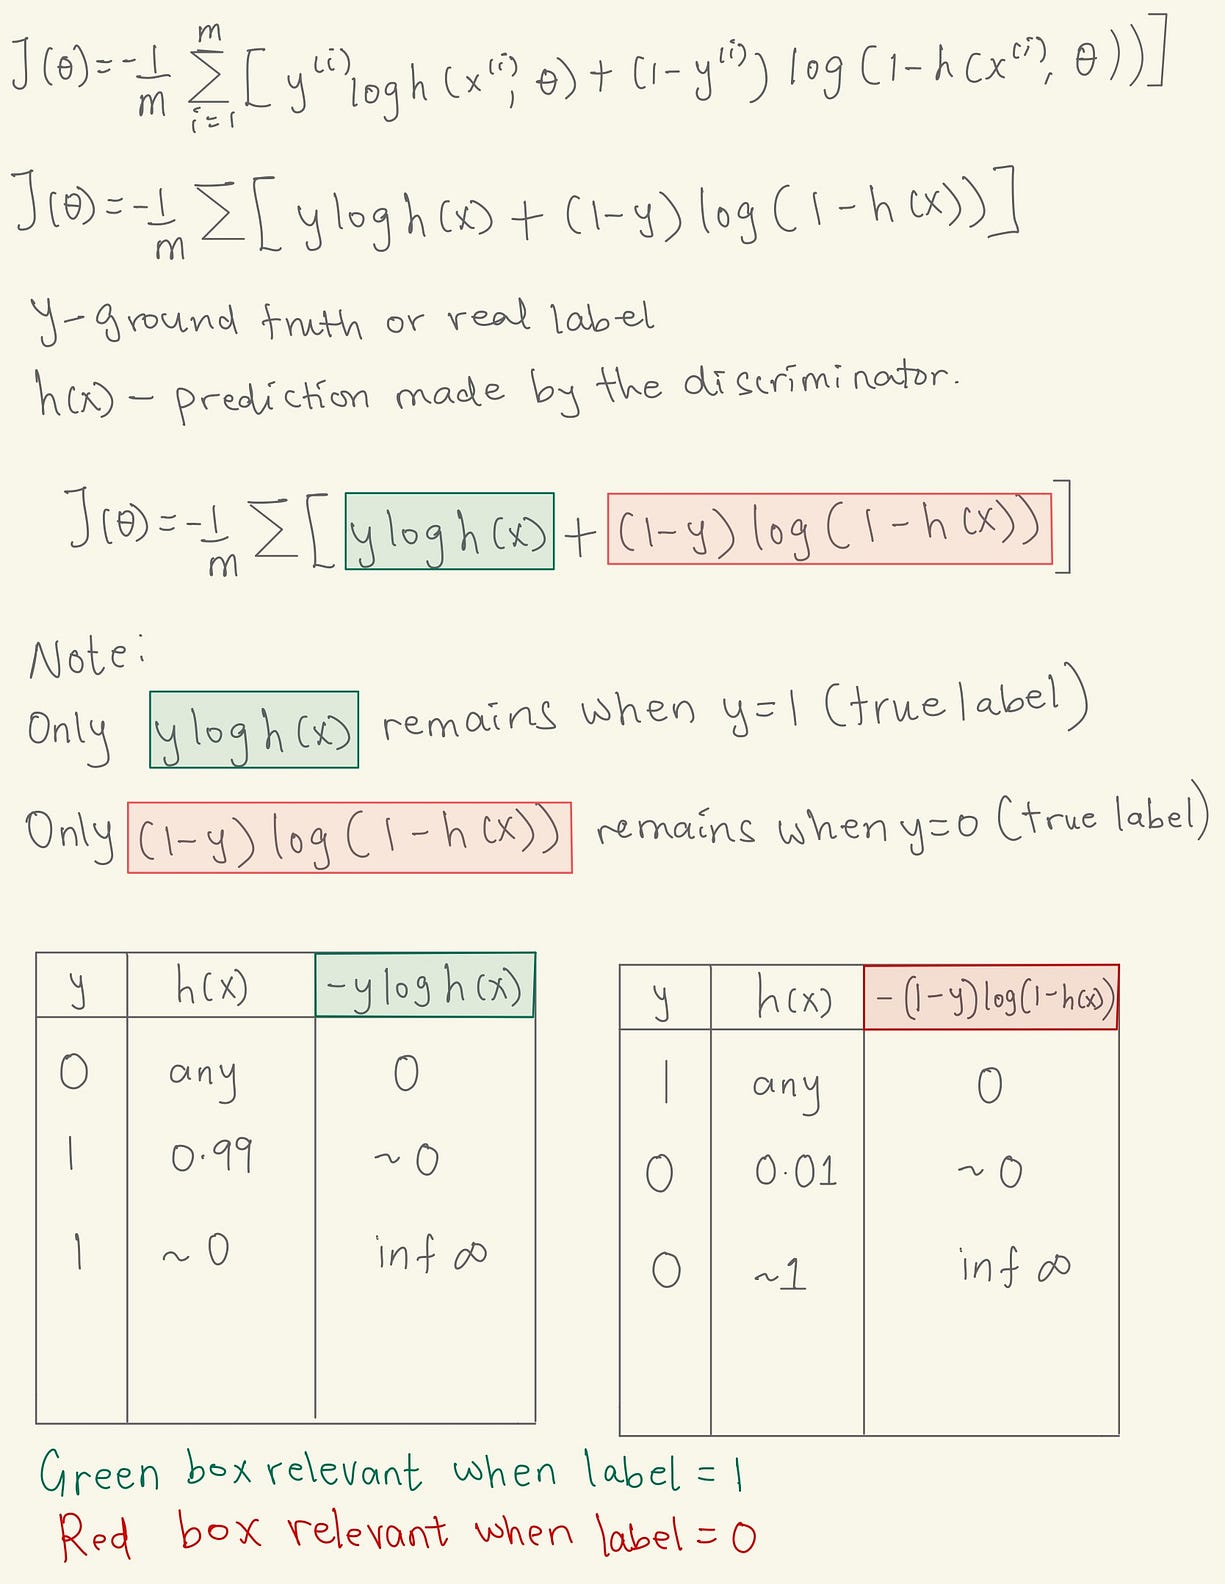 J(θ)=-1/m Σ_{i=1}^{m} [y^{(i)} log h(x^{(i)}, θ) + (1-y^{(i)}) log(1-h(x^{(i)}, θ))]
J(θ)=-1/m Σ[y log h(x) + (1-y) log(1-h(x))]
y-ground truth or real label
h(x) - prediction made by the discriminator.
J(θ)=-1/m Σ[y log h(x) + (1-y) log(1-h(x))]
Note:
Only y log h(x) remains when y=1 (true label)
Only (1-y) log(1-h(x)) remains when y=0 (true label)
y h(x) -y log h(x)
0 any 0
1 0.99 ~0
1 ~0 inf ∞
y h(x) -(1-y)log(1-h(x))
1 any 0
0 0.01 ~0
0 ~1 inf ∞
Green box relevant when label = 1
Red box relevant when label = 0